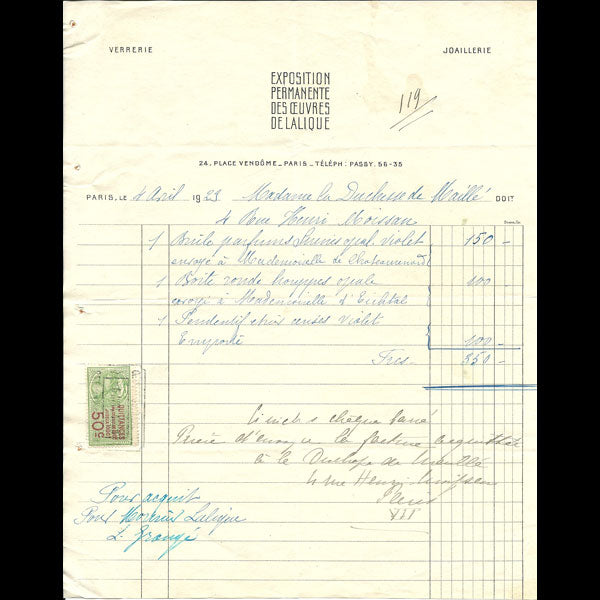 VERRERIE
JOAILLERIE
EXPOSITION
PERMANENTE
DES ŒUVRES
DE LALIQUE
119
24, PLACE VENDÔME _ PARIS _ TÉLÉPH: PASSY. 56-35
PARIS, LE 4 Avril 1923 Madame la Duchesse de Maillé DOIT
4 Rue Henri Moissan
1 Brûle parfums opal. violet 150 -
envoyé à Mademoiselle de
1 Boîte ronde houppes opale 100 -
envoyé à Mademoiselle d'Eichtal
1 Pendentif violet
Emporté 100 -
Frcs. 350 -
QUITTANCES
50c
chèque barré
Prière d'envoyer la facture acquittée
à la Duchesse de Maillé
4 rue Henri Moissan
Paris
VII
Pour acquit
Pour Lalique